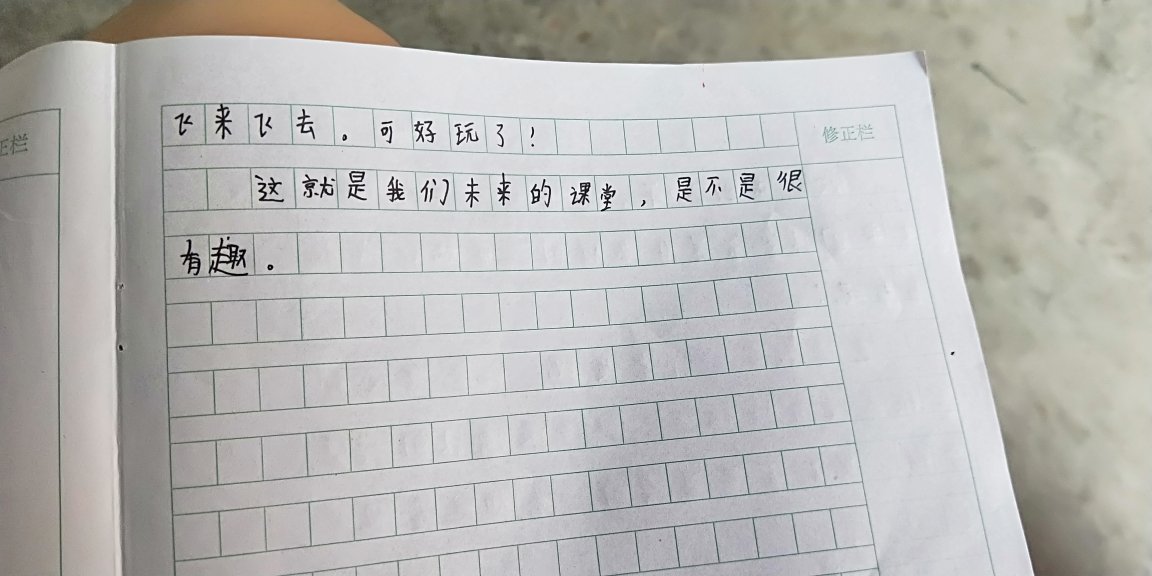 飞来飞去。可好玩了！
修正栏
正栏
这就是我们未来的课堂，是不是很
有趣。